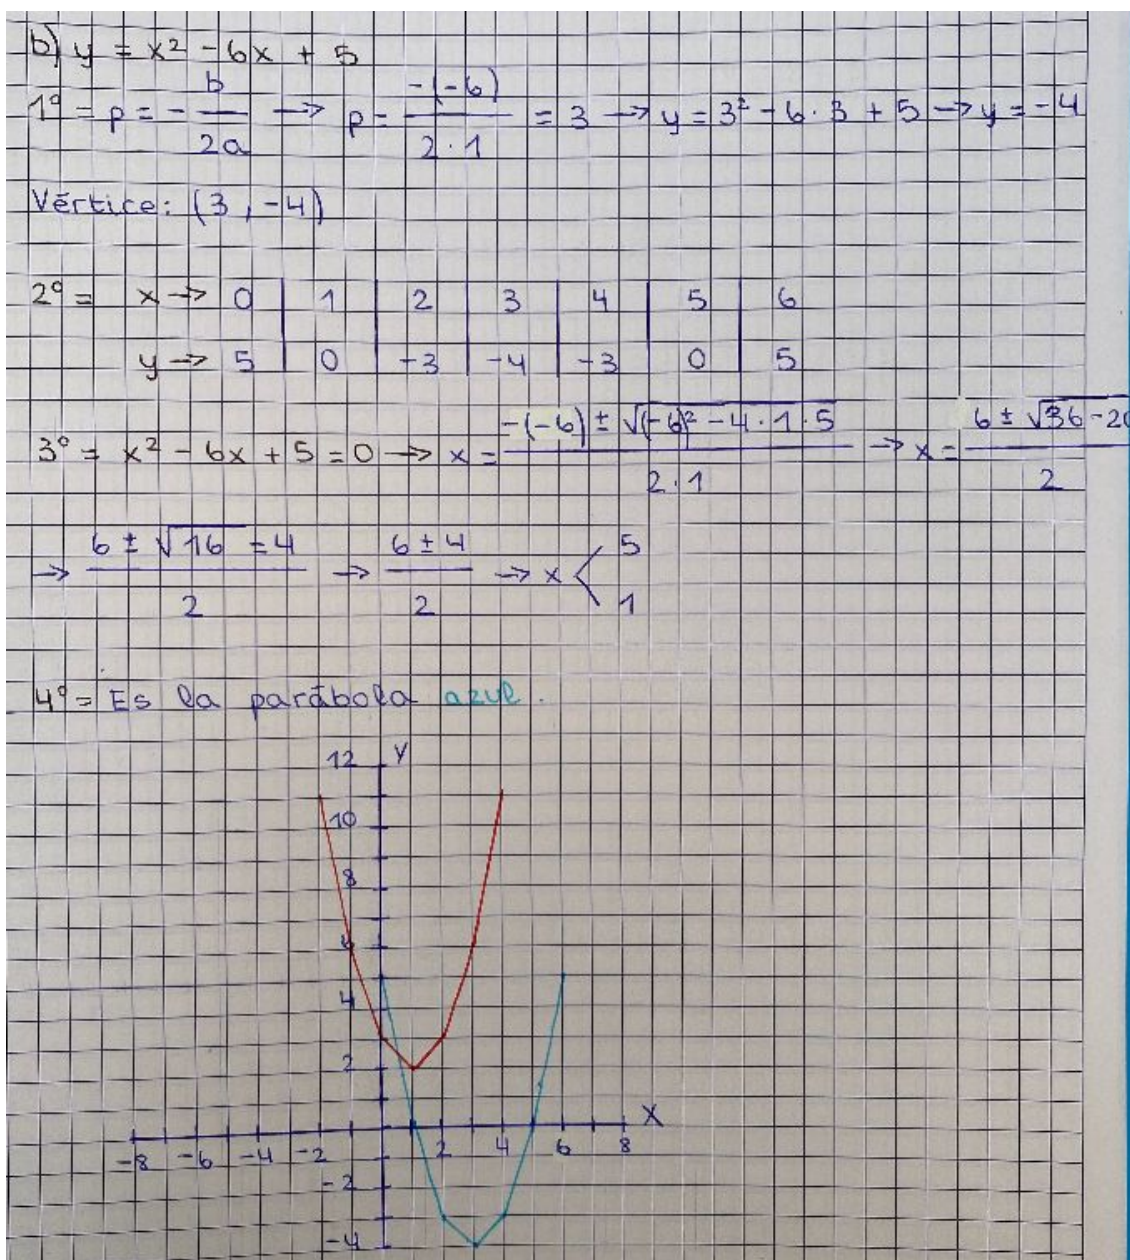 b) y = x² - 6x + 5
1º = p = - b/2a → p = -(-6)/2·1 = 3 → y = 3² - 6·3 + 5 → y = -4
Vértice: (3, -4)
2º = x → 0 | 1 | 2 | 3 | 4 | 5 | 6
y → 5 | 0 | -3 | -4 | -3 | 0 | 5
3º = x² - 6x + 5 = 0 → x = -(-6) ± √(-6)² - 4·1·5 / 2·1 → x = 6 ± √36 - 20 / 2
→ 6 ± √16 = 4 / 2 → 6 ± 4 / 2 → x < 5
1
4º = Es la parábola azul.
12 Y
10
8
6
4
2
X
-8 -6 -4 -2 2 4 6 8
-2
-4